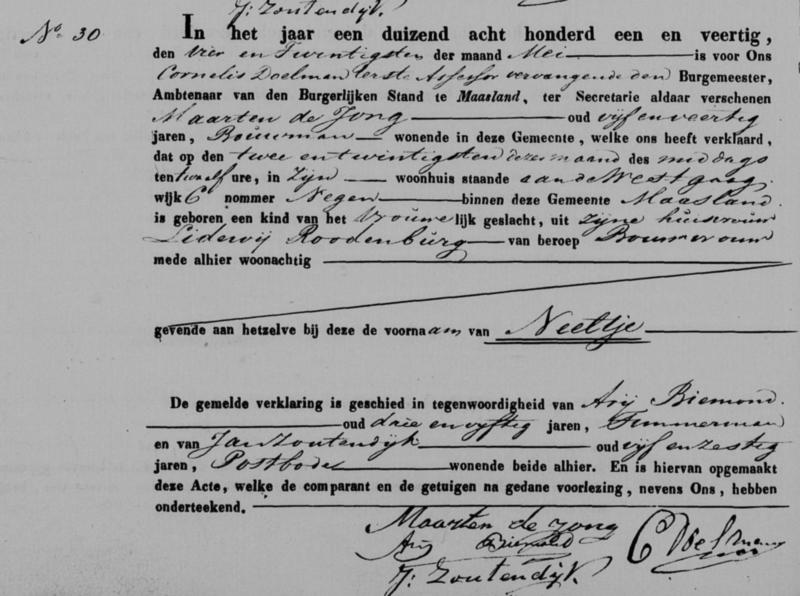 J: Zoutendijk.
No. 30
In het jaar een duizend acht honderd een en veertig,
den vier en Twintigsten der maand Mei is voor Ons
Cornelis Doelman eerste Assessor vervangende den Burgemeester,
Ambtenaar van den Burgerlijken Stand te Maasland, ter Secretarie aldaar verschenen
Maarten de Jong oud vijf en veertig
jaren, Bouwman wonende in deze Gemeente, welke ons heeft verklaard,
dat op den twee en twintigsten dezer maand des middags
ten twaalf ure, in Zijn woonhuis staande aan de Westgaag
wijk C nommer Negen binnen deze Gemeente Maasland.
is geboren een kind van het Vrouwelijk geslacht, uit zijne huisvrouw
Lidewij Roodenburg van beroep Bouwvrouw
mede alhier woonachtig
gevende aan hetzelve bij deze de voornaam van Neeltje
De gemelde verklaring is geschied in tegenwoordigheid van Arij Biemond.
oud drie en vyftig jaren, Timmerman
en van Jan Zoutendijk oud vijf en zestig
jaren, Postbode wonende beide alhier. En is hiervan opgemaakt
deze Acte, welke de comparant en de getuigen na gedane voorlezing, nevens Ons, hebben
onderteekend.
Maarten de Jong
Arij Biemond C Doelman
J: Zoutendijk.